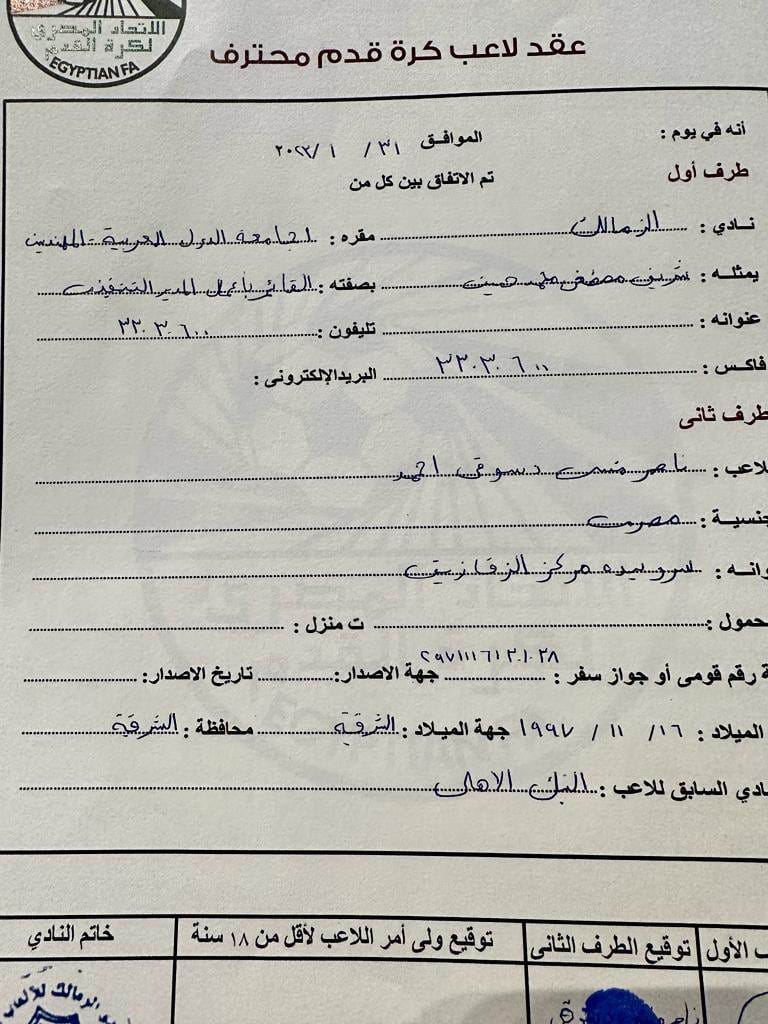 الاتحاد المصري
لكرة القدم
EGYPTIAN FA
عقد لاعب كرة قدم محترف
أنه في يوم : الموافق ٣١ / ١ / ٢٠٢٣
طرف أول تم الاتفاق بين كل من
نادي : الزمالك مقره : ١ جامعة الدول العربية - المهندسين
يمثله : شريف مصطفى محمد حسين بصفته : القائم بأعمال المدير التنفيذى
عنوانه : تليفون : ٣٣٠٣٠٦٠٠
فاكس : ٣٣٠٣٠٦٠٠ البريد الإلكترونى :
طرف ثانى
لاعب : ناصر منسى دسوقى احمد
جنسية : مصرى
وانه : مركز الزقازيق
حمول : ت منزل :
ة رقم قومى أو جواز سفر : جهة الاصدار: تاريخ الاصدار:
الميلاد : ١٦ / ١١ / ١٩٩٧ جهة الميلاد : الشرقية محافظة : الشرقية
ادي السابق للاعب : البنك الاهلى
ف الأول توقيع الطرف الثانى توقيع ولى أمر اللاعب لأقل من ١٨ سنة خاتم النادي
الزمالك للألعاب